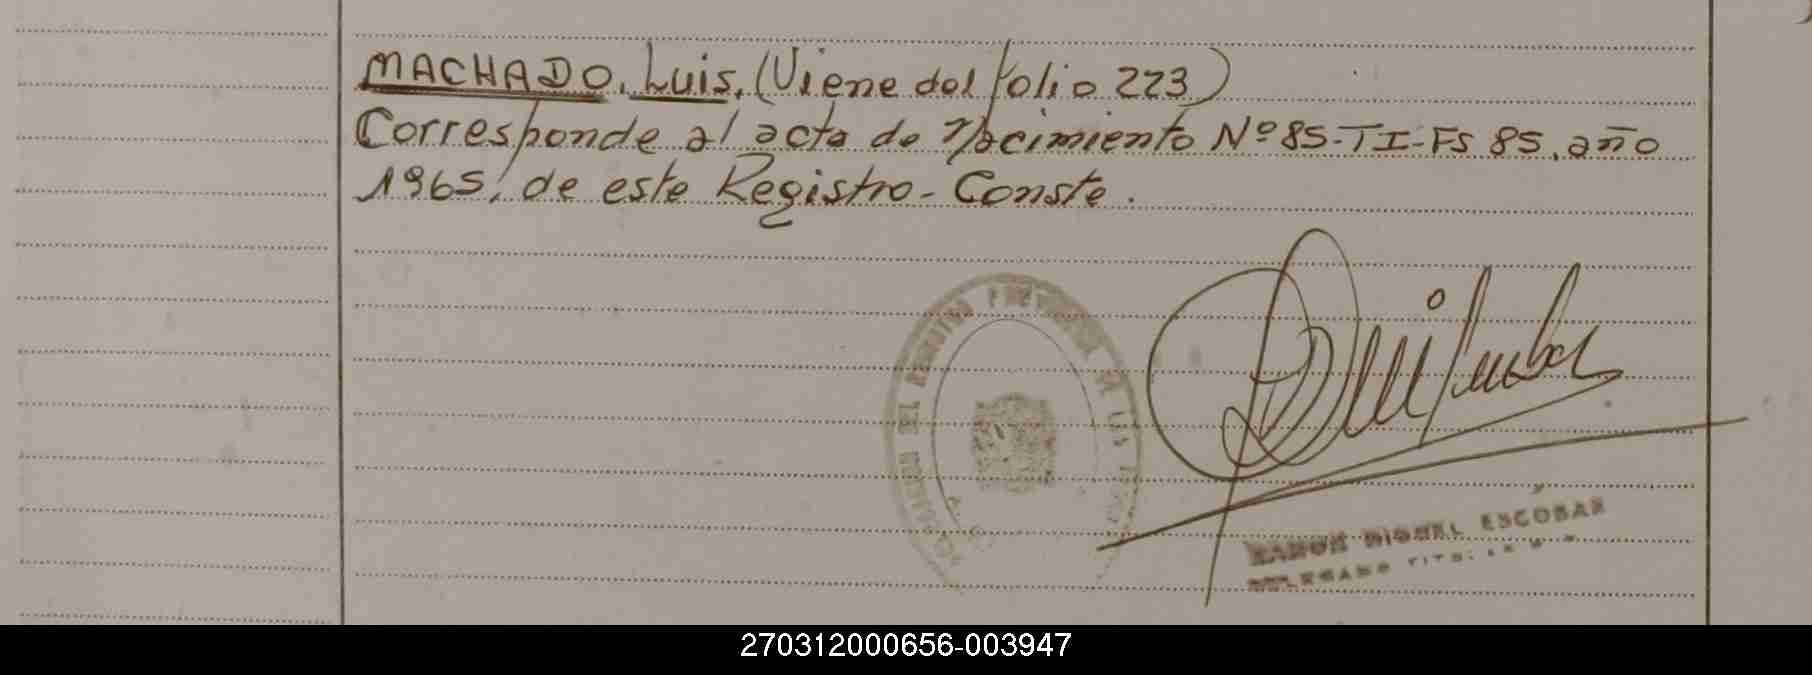 MACHADO, Luis, (Viene del folio 223)
Corresponde al acta de Nacimiento Nº 85-TI-FS 85, año
1965, de este Registro- Conste.
DEL REGISTRO PROVINCIAL DE LAS
RAMON MIGUEL ESCOBAR
DELEGADO TITULAR
270312000656-003947